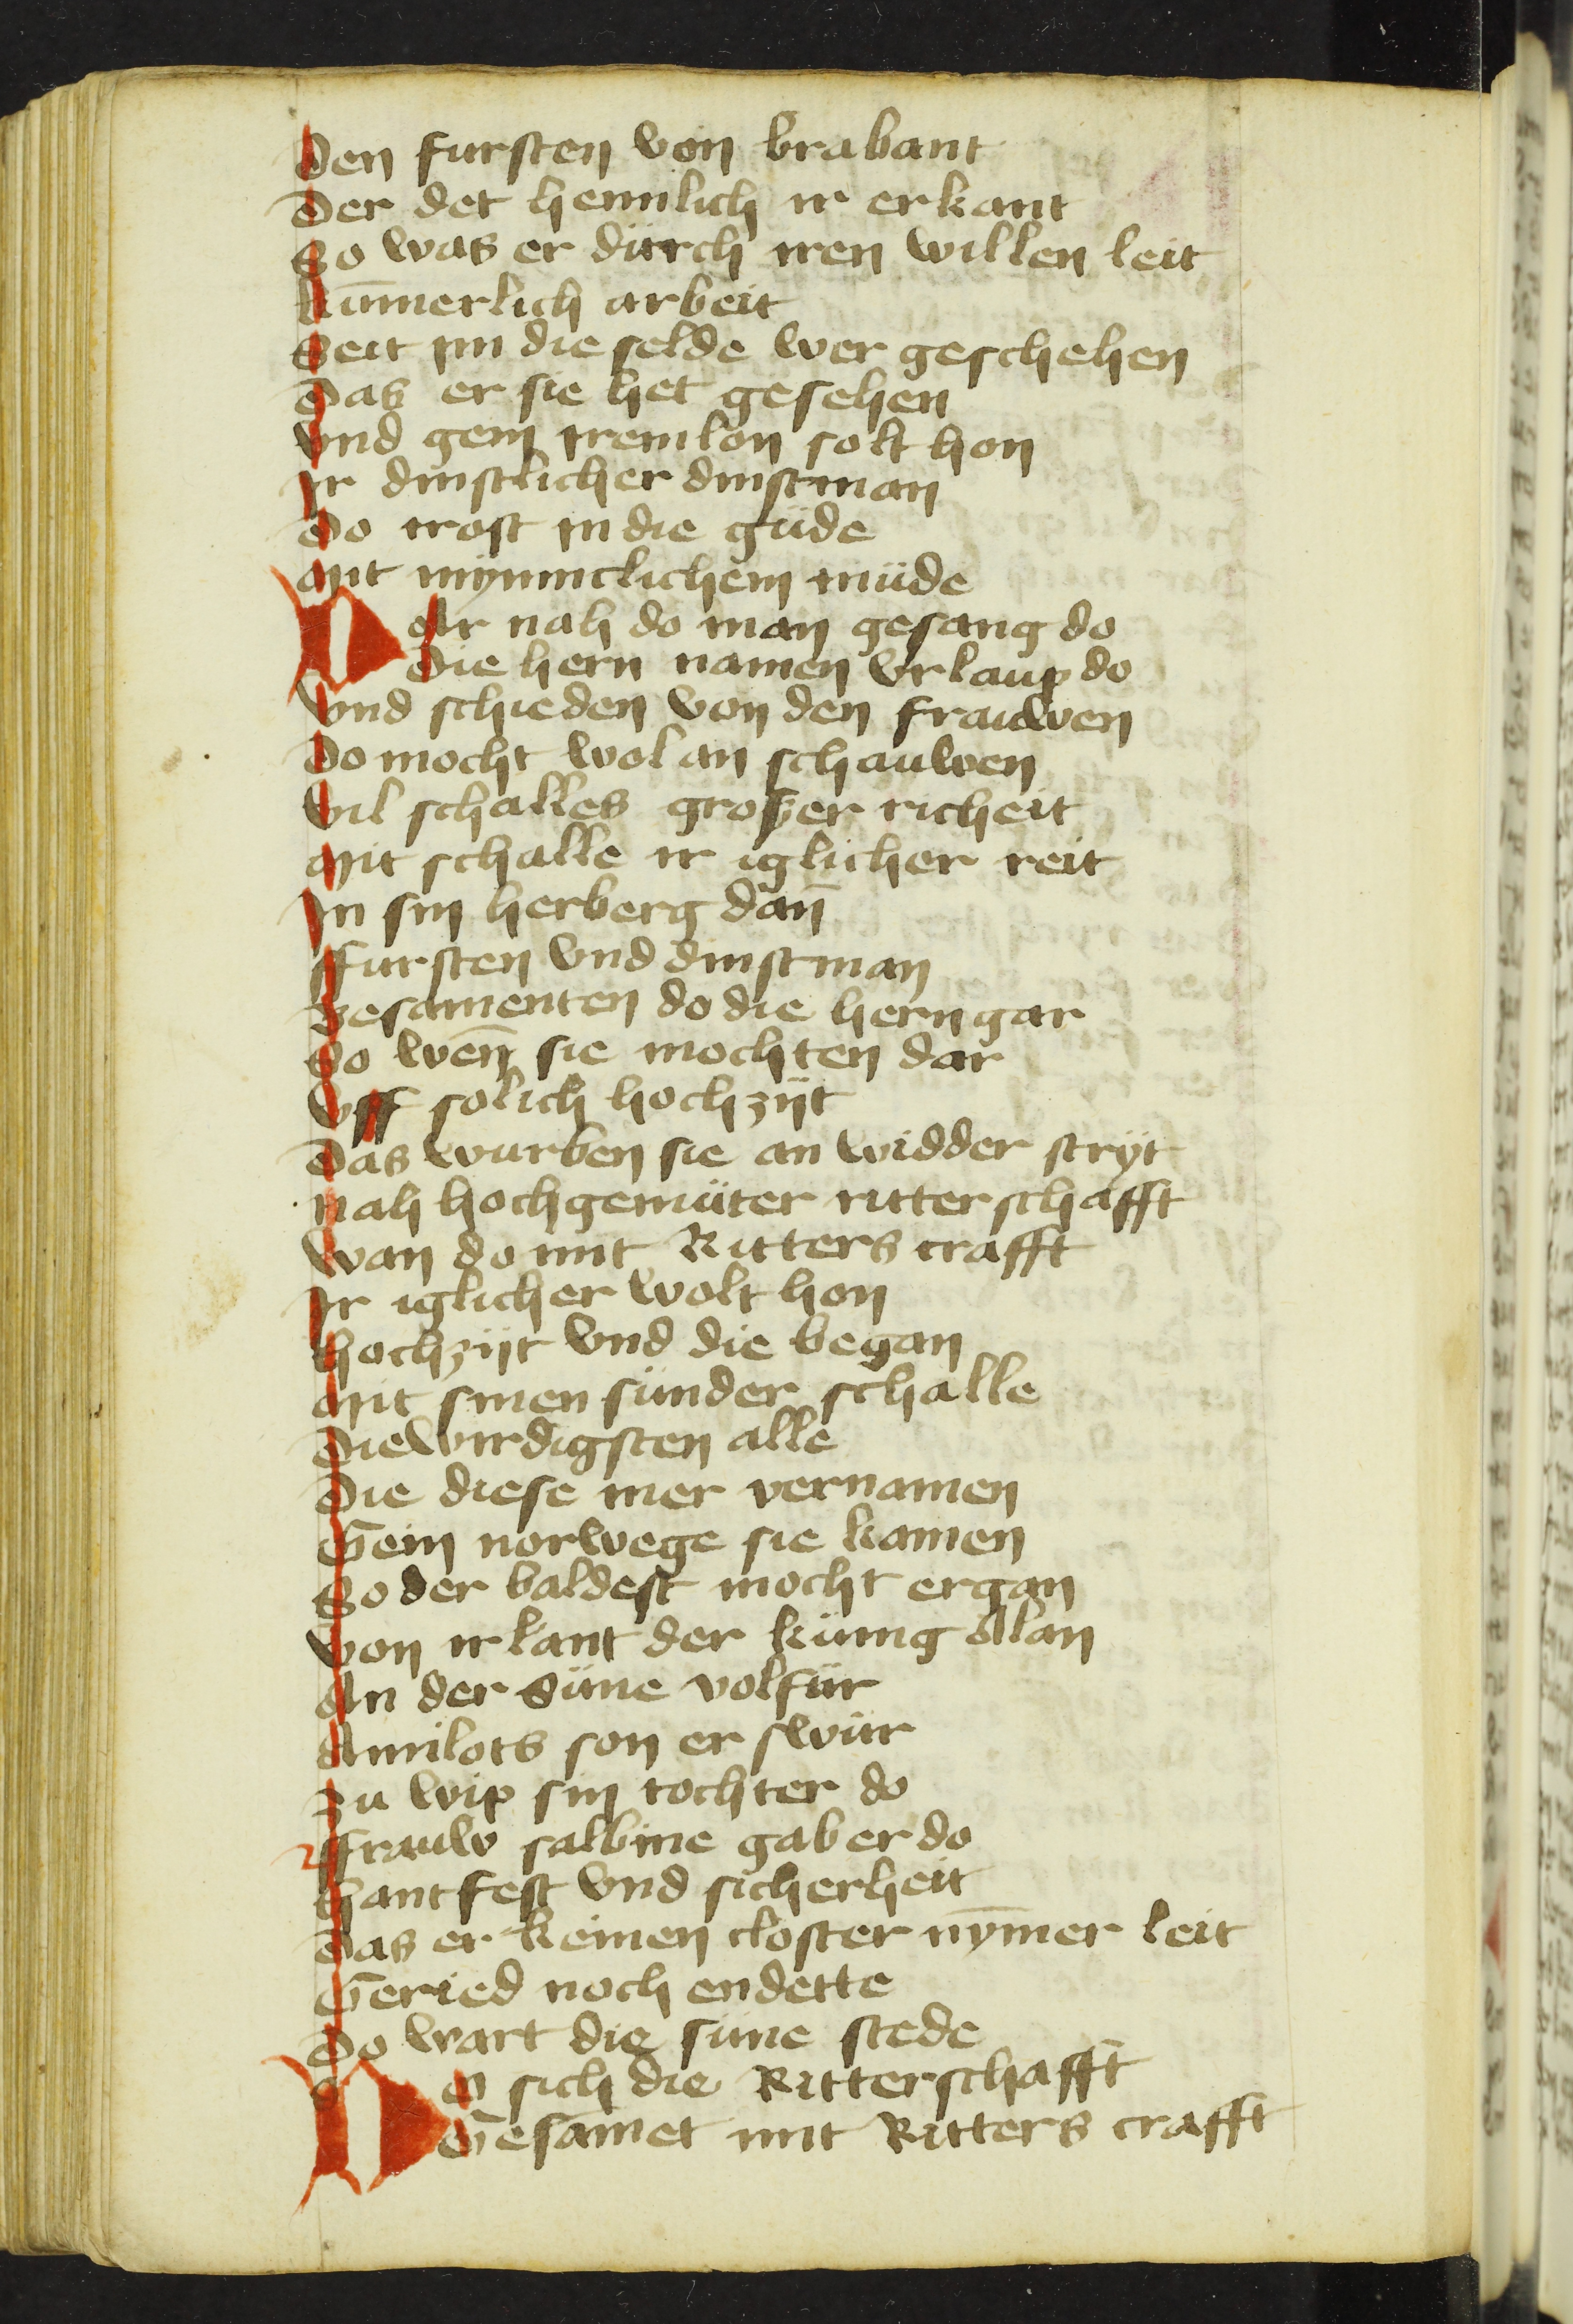 Den fursten von brabant
Der det heimlich ir erkant
So was er dürch iren willen leit
kūmerlich arbeit
Seit im die selde wer geschehen
Das er sie het gesehen
Vnd gein irem lon solt hon
Ir dinstlicher dinstman
Do trost in die güde
Mit mynniclichem müde
DAr nah do man gesang do
Die hern namen vrlaup do
Vnd schieden von den frauwen
Do mocht wol an schauwen
Vil schalles groszer richeit
Mit schalle ir iglicher reit
In sin herberg dan̄
Ffursten vnd dinstman
Besamenten do die hern gar
So wen̄ sie mochten dar
Vff solich hochzijt
Das wurben sie an widder stryt
Nah hochgemüter ritterschafft
Wan do mit Ritters crafft
Ir iglicher wolt hon
Hochzijt vnd die began
Mit sinen sunder schalle
Die wirdigsten alle
Die diese mer vernamen
Gein norwege sie kamen
So der baldest mocht ergan
Von irlant der künig Alan
An der Süne volfür
Amilots son er swür
Zu wip sin tochter do
Ffrauw salbine gab er do
Hantfest vnd sicherheit
Das er keinen closter nȳmer leit
Geried noch endette
Do wart die süne stede
DO sich die Ritterschafft
Gesamet mit Ritters crafft